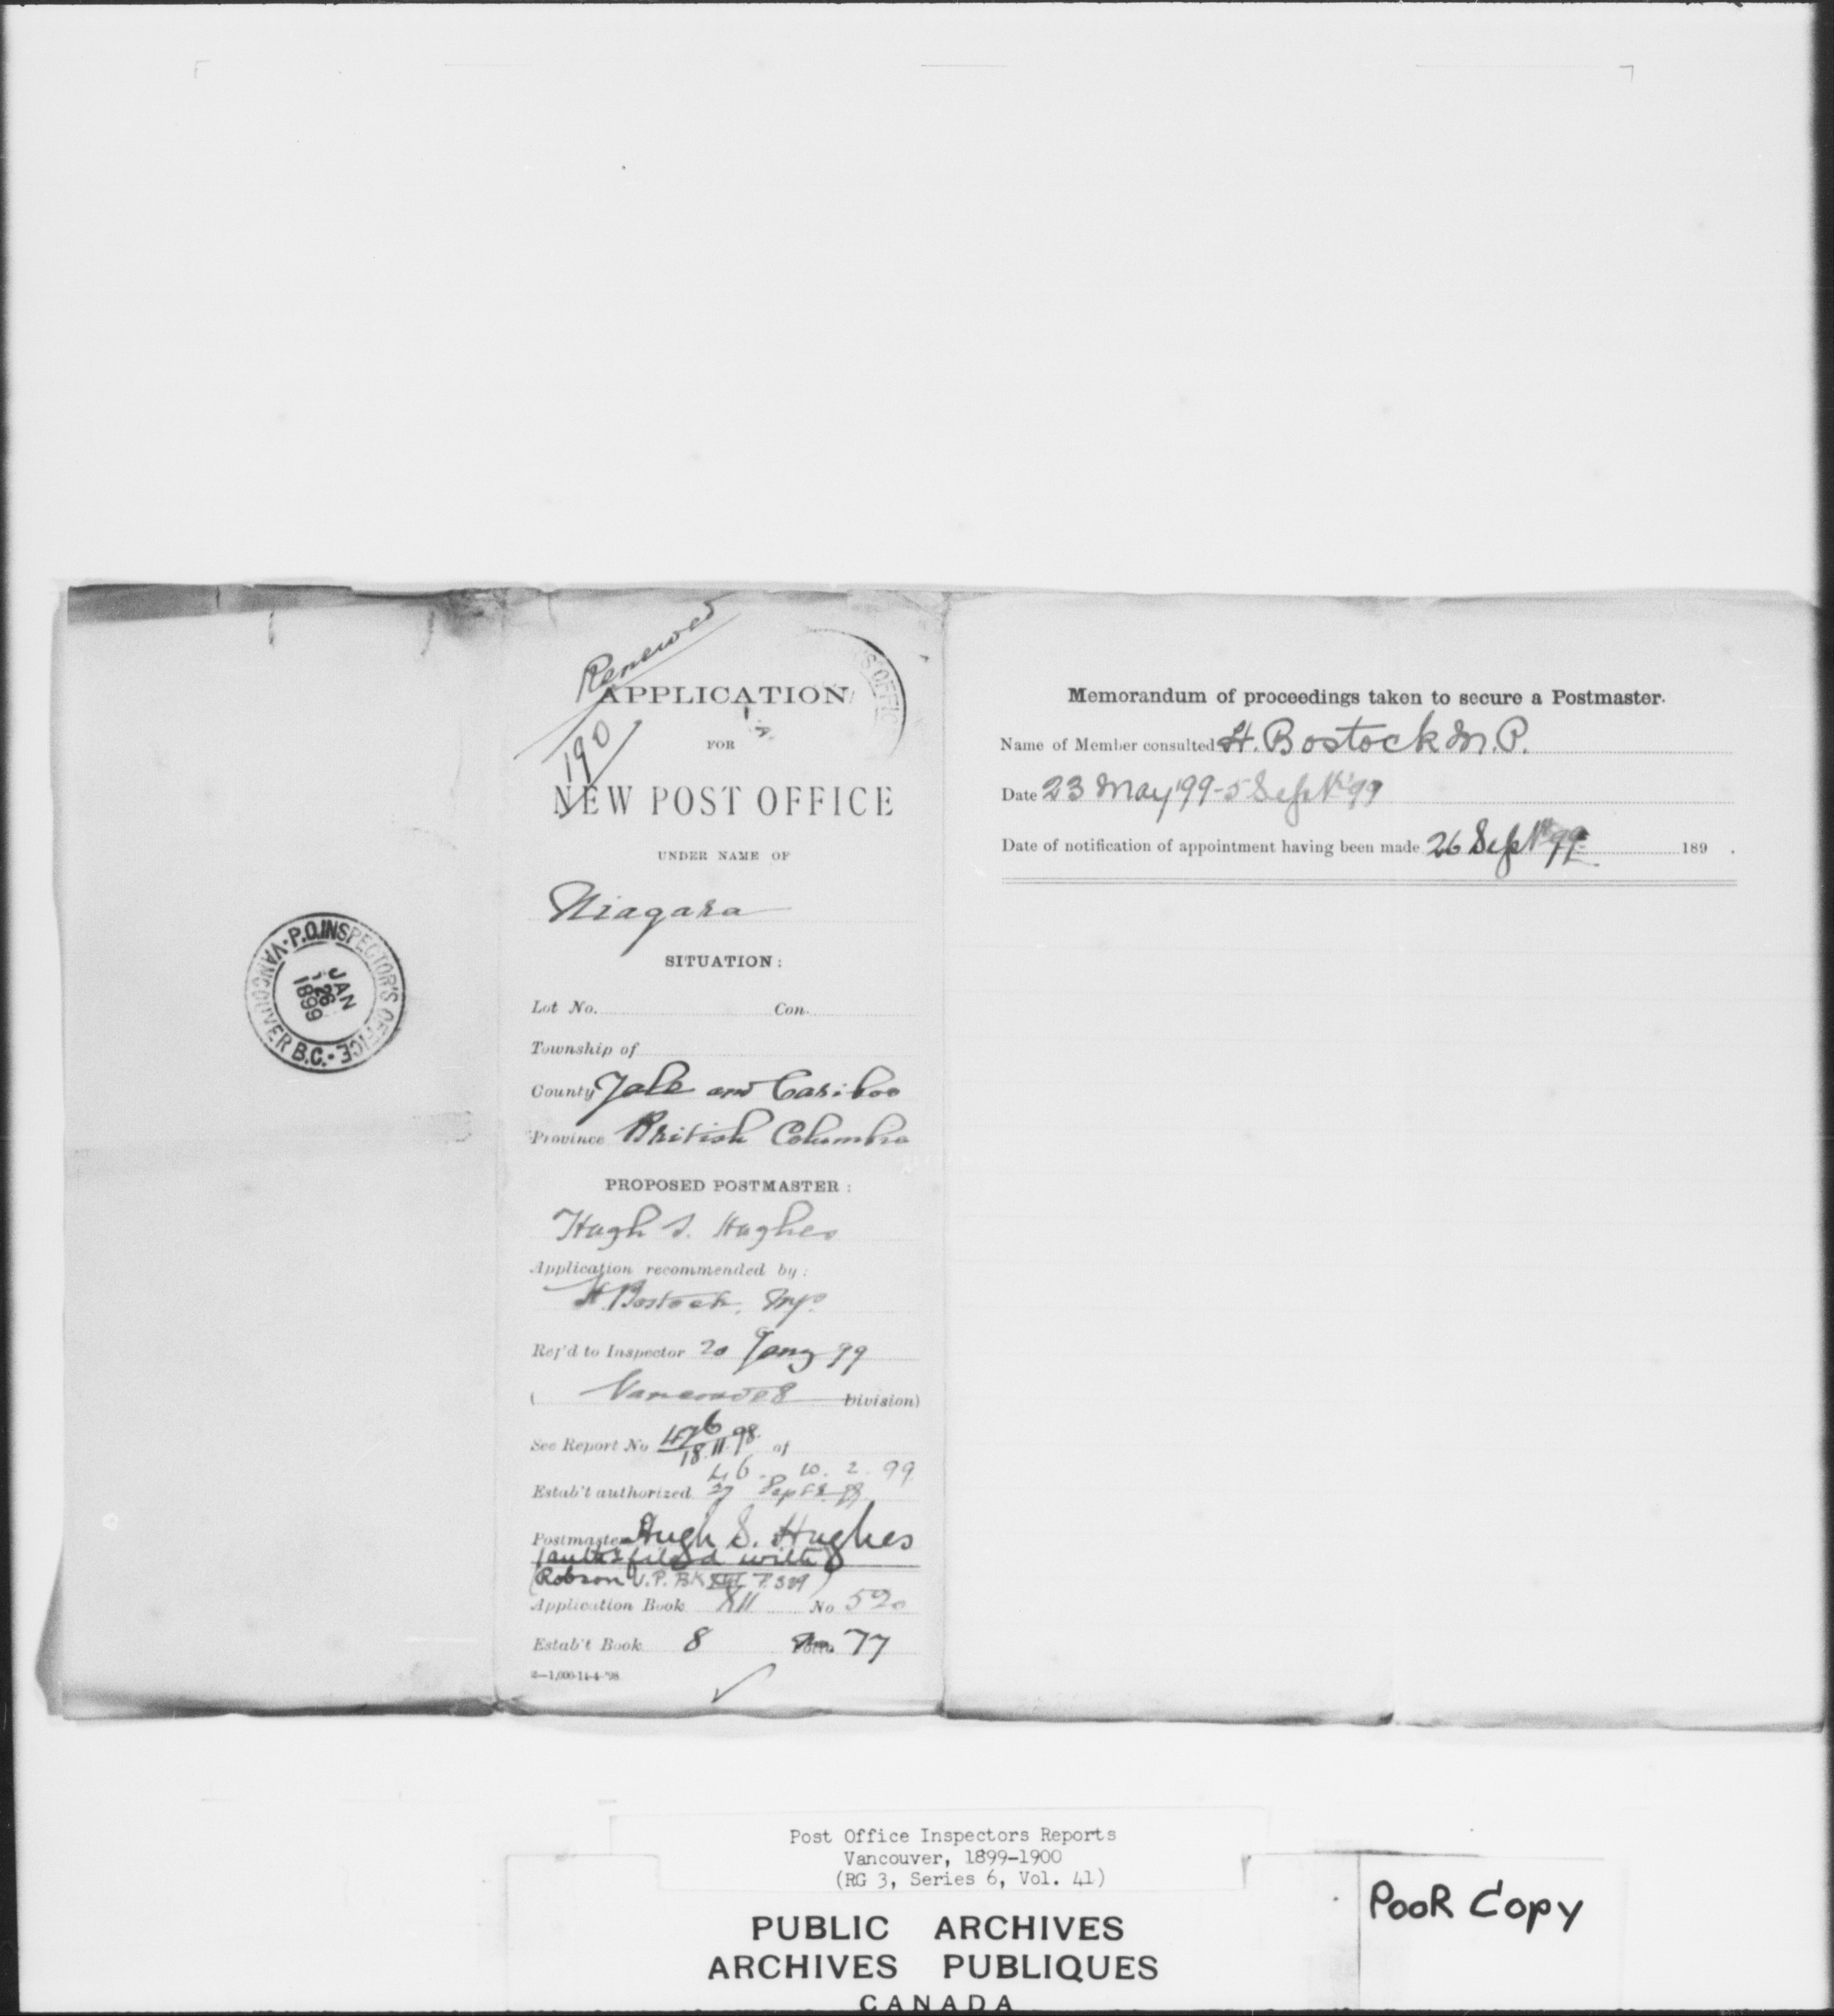 VANCOUVER B.C. · P.O. INSPECTOR'S OFFICE ·
JAN
26
1899
Renewed
190
S OFFIC
APPLICATION
FOR
NEW POST OFFICE
UNDER NAME OF
Niagara
SITUATION:
Lot No. Con.
Township of
County Yale and Cariboo
Province British Columbia
PROPOSED POSTMASTER:
Hugh S. Hughes
Application recommended by:
H. Bostock, M.P.
Ref'd to Inspector 20 Jany 99
( Vancouver Division)
See Report No 476 18.11.98. of
46. 10. 2. 99
Estab't authorized 27 Sept 99
Postmaster Hugh S. Hughes
filed with
(Robson V.P. BK XIII P. 329)
Application Book XII No 520
Estab't Book 8 77
2—1,000-14-4-'98
Memorandum of proceedings taken to secure a Postmaster.
Name of Member consulted H. Bostock M.P.
Date 23 May '99 - 5 Sept '99
Date of notification of appointment having been made 26 Sept 99 189 .
Post Office Inspectors Reports
Vancouver, 1899-1900
(RG 3, Series 6, Vol. 41)
PUBLIC ARCHIVES
ARCHIVES PUBLIQUES
CANADA
POOR COPY